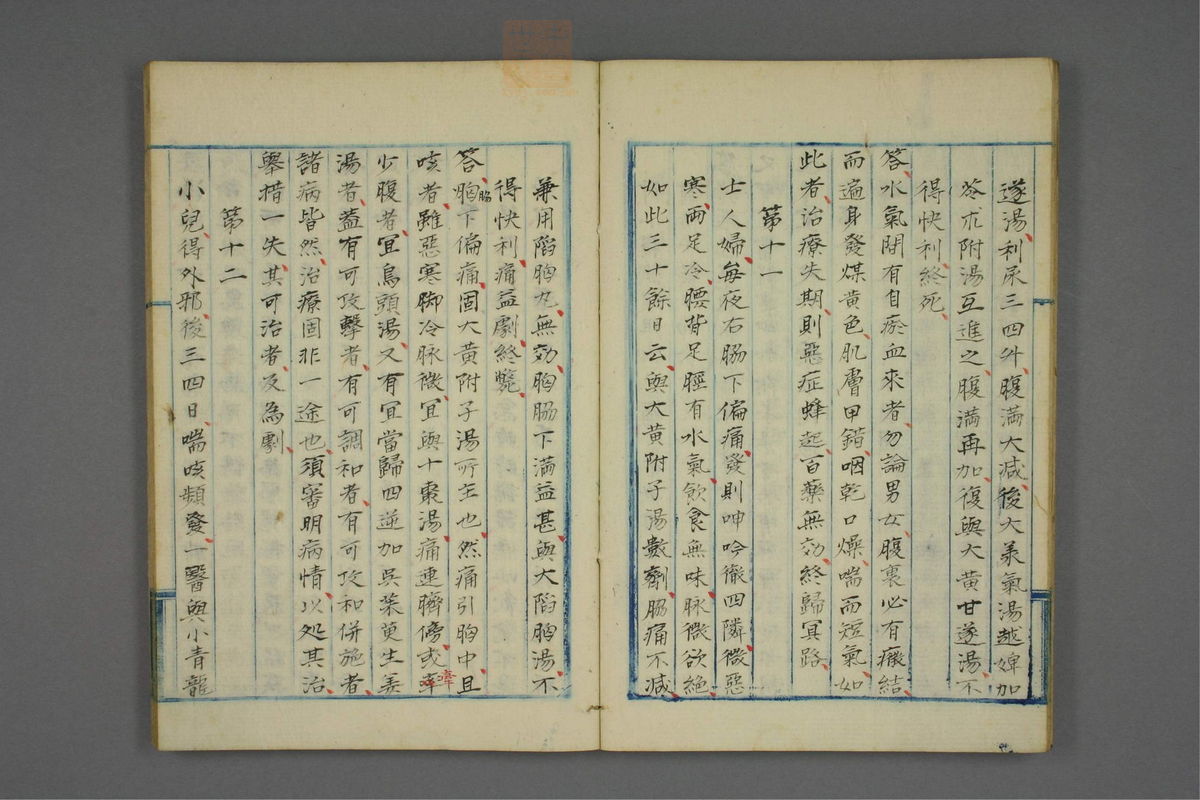 遂湯、利尿三四升、腹滿大減、後大承氣湯越婢加
苓朮附湯互進之、腹滿再加、復與大黃甘遂湯、不
得快利終死、
答、水氣間有自瘀血來者、勿論男女、腹裏必有癥結、
而遍身發煤黃色、肌膚甲錯、咽乾口燥、喘而短氣、如
此者治療失期、則惡症蜂起、百藥無効、終歸冥路、
第十一
士人婦、每夜右脇下偏痛、發則呻吟徹四隣、微惡
寒、兩足冷、腰背足腫有水氣、飲食無味、脉微欲絶、
如此三十餘日云、與大黃附子湯數劑、脇痛不減、
兼用陷胸丸、無効、胸脇下滿益甚、與大陷胸湯、不
得快利、痛益劇、終斃、
答、胸脇下偏痛、固大黃附子湯所主也、然痛引胸中、且
咳者、雖惡寒脚冷脉微、宜與十棗湯、痛連臍傍、或牽
少腹者、宜烏頭湯、又有宜當歸四逆加吳茱萸生姜
湯者、蓋有可攻擊者、有可調和者、有可攻和併施者、
諸病皆然、治療固非一途也、須審明病情、以処其治、
舉措一失、其可治者、反為劇、
第十二
小兒得外邪、後三四日、喘咳頻發、一醫與小青龍